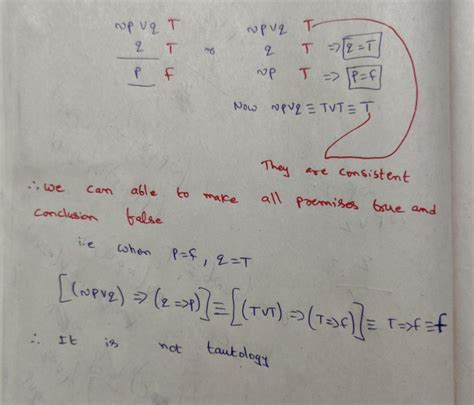 ~p∨q T ~p∨q T
q T or q T ⇒ q=T
p f ~p T ⇒ p=f
Now ~p∨q ≡ T∨T ≡ T
They are consistent
∴ we can able to make all premises true and
conclusion false
i.e when p=f, q=T
[(~p∨q) ⇒ (q⇒p)] ≡ [(T∨T) ⇒ (T⇒f)] ≡ T⇒f ≡ f
∴ It is not tautology